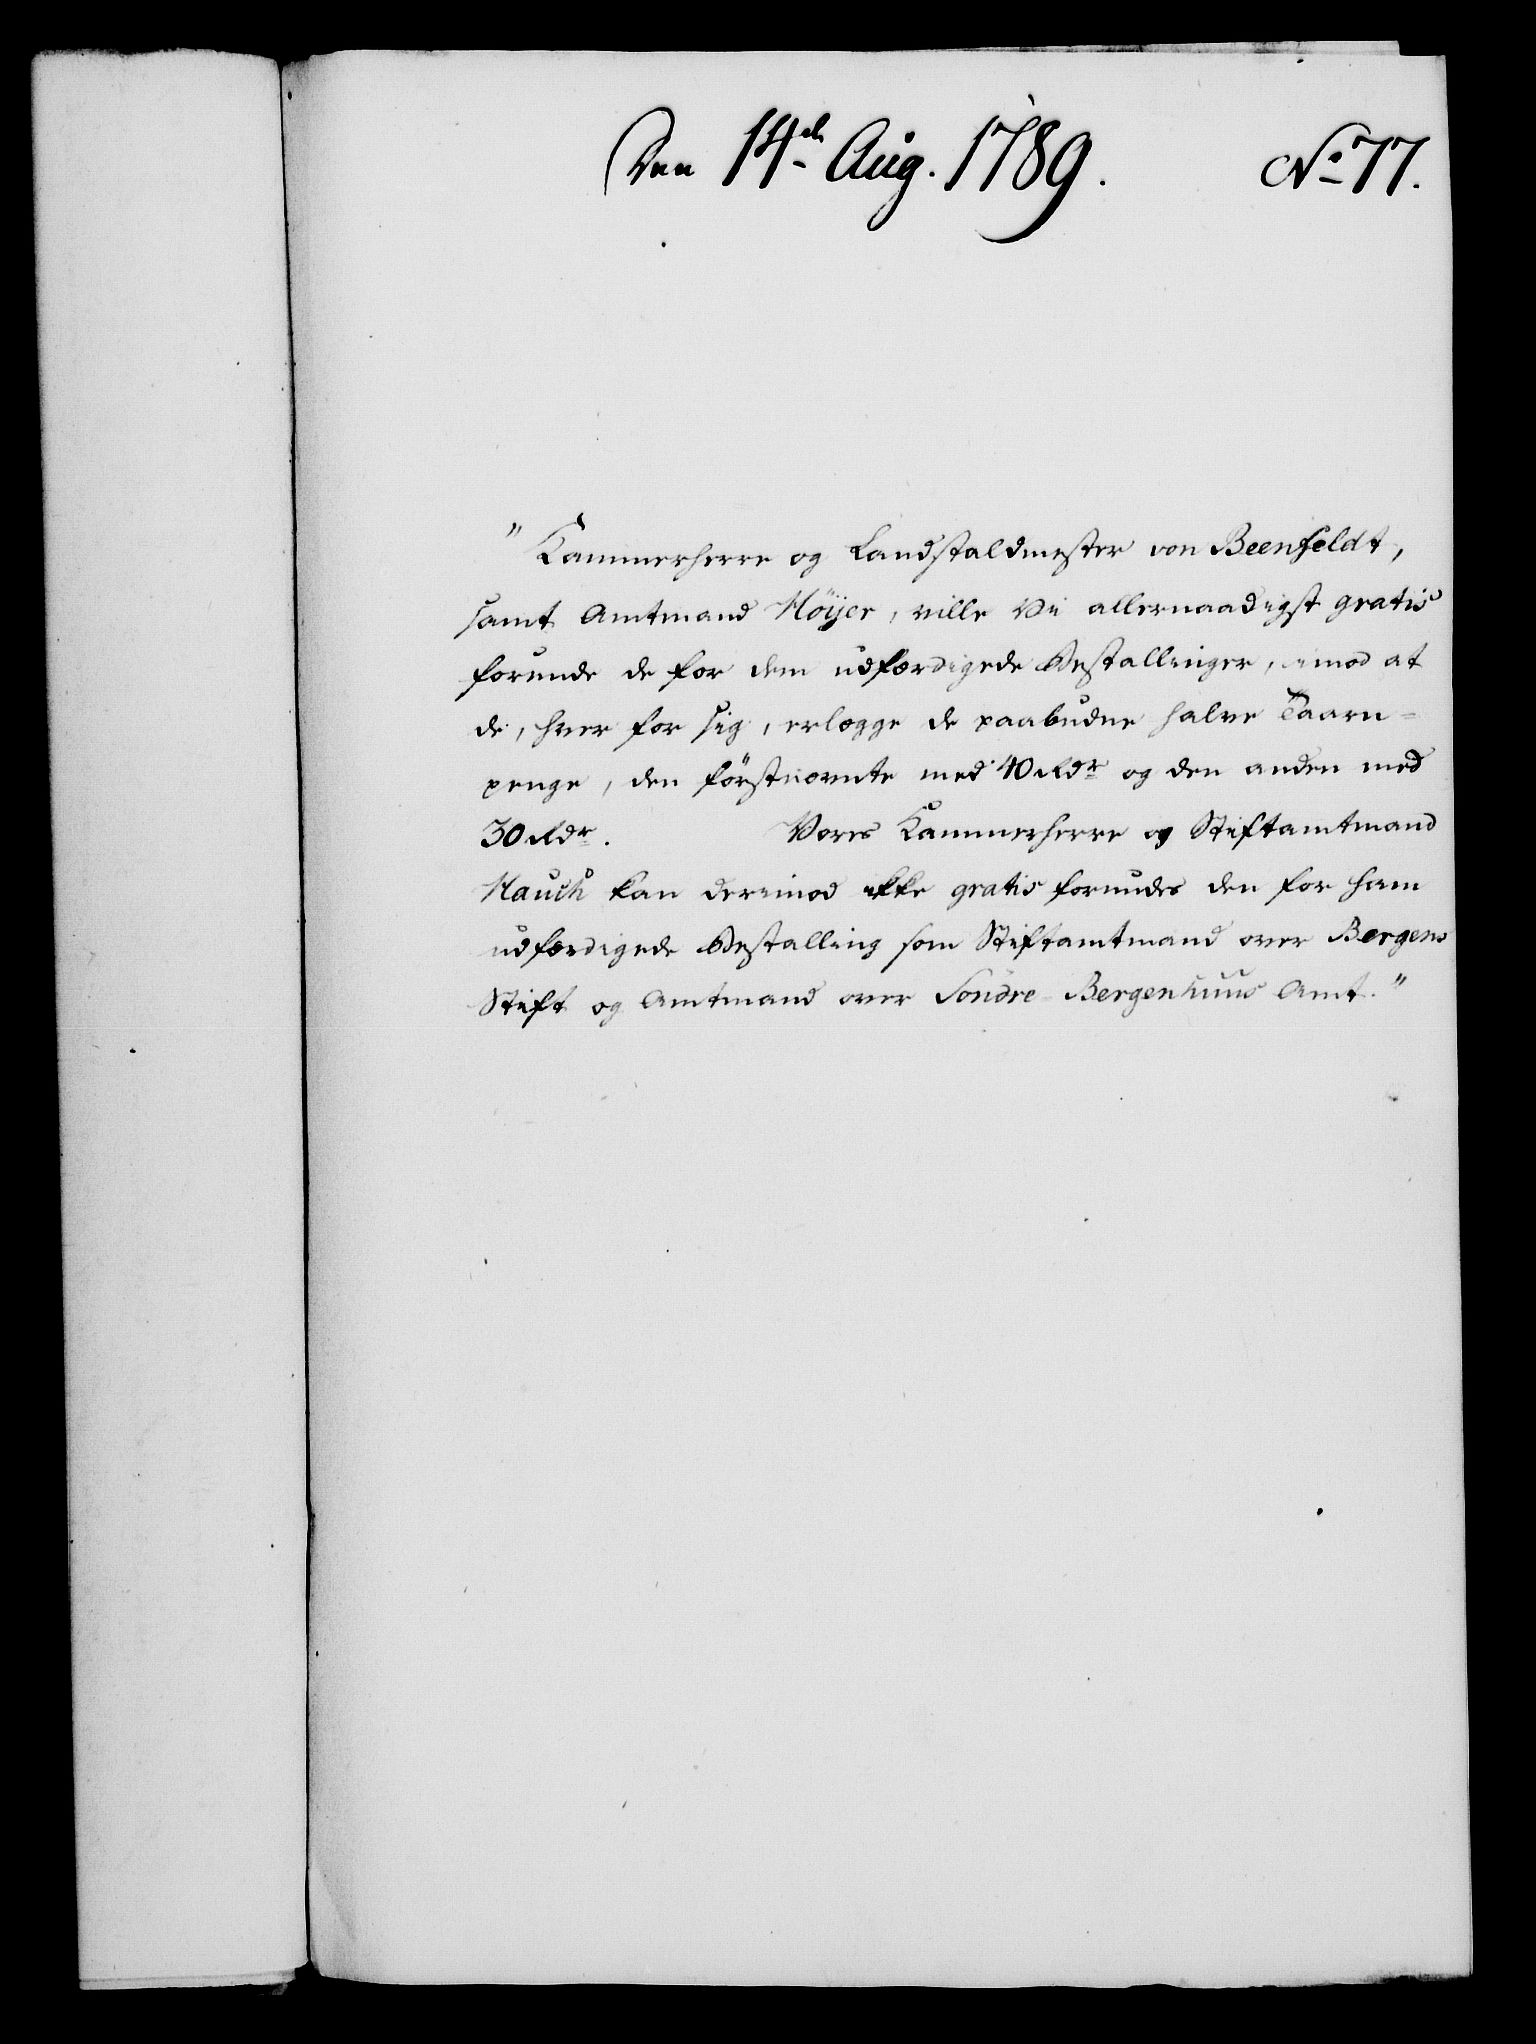 Den 14de Aug. 1789. No 77.
"Kammerherre og Landstaldmester von Beenfeldt,
samt Amtmand Höyer, ville Vi allernaadigst gratis
forunde de for dem udfærdigede Bestallinger, imod at
de, hver for sig, erlægge de paabudne halve Taarn-
penge, den förstnævnte med 40 Rdr og den anden med
30 Rdr. Vores Kammerherre og Stiftamtmand
Hauch kan derimod ikke gratis forundes den for ham
udfærdigede Bestalling som Stiftamtmand over Bergens
Stift og Amtmand over Söndre-Bergenhuus Amt."